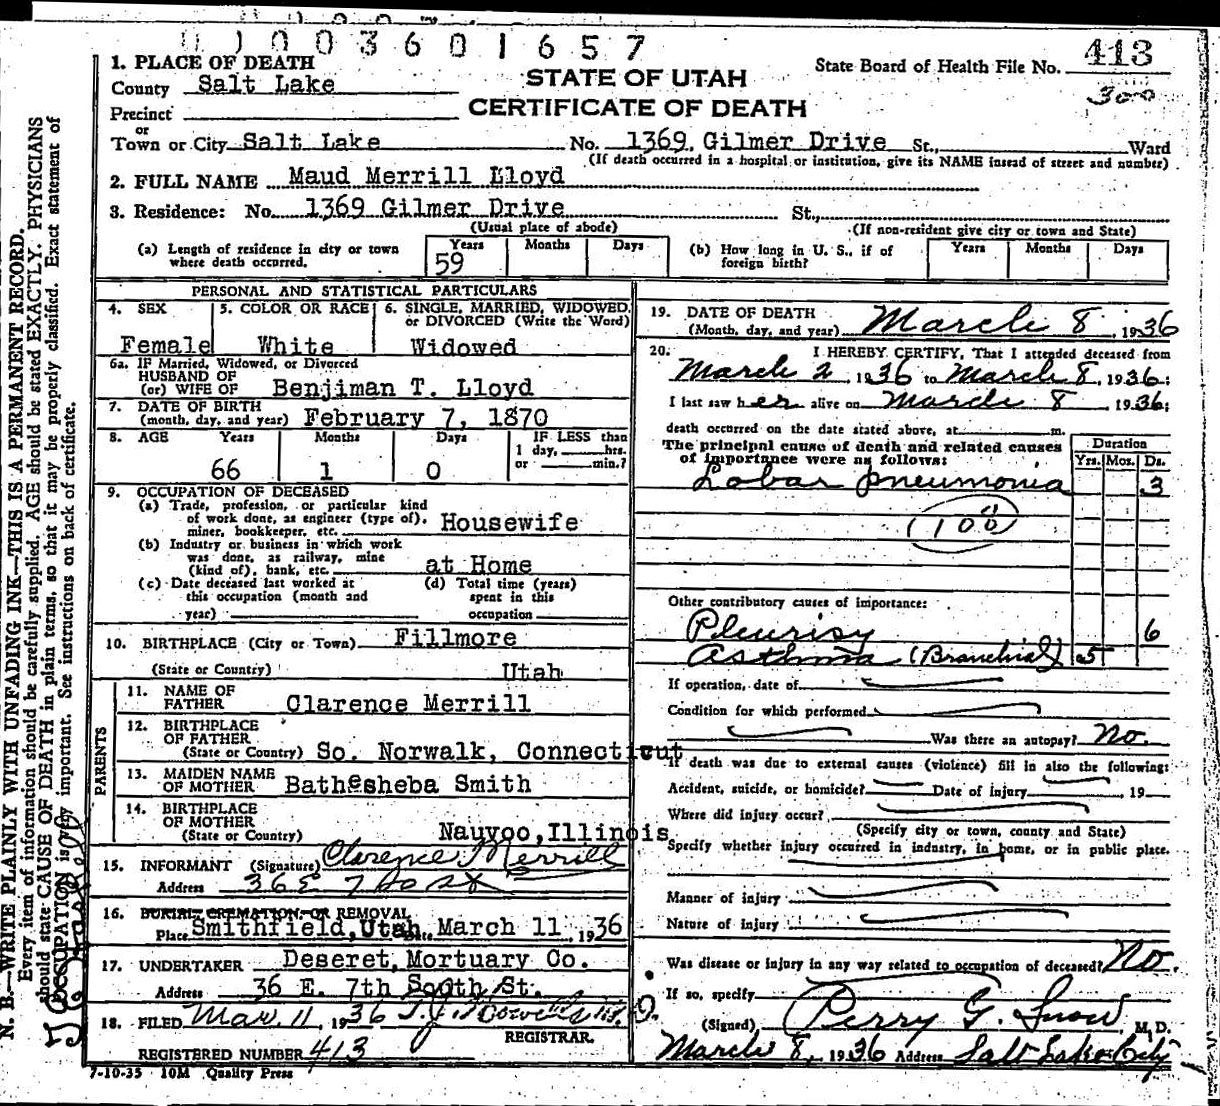 0 1 0 0 3 6 0 1 6 5 7
1. PLACE OF DEATH
County Salt Lake
STATE OF UTAH
CERTIFICATE OF DEATH
State Board of Health File No. 413
300
Precinct
or
Town or City Salt Lake No. 1369 Gilmer Drive St., Ward
(If death occurred in a hospital or institution, give its NAME instead of street and number)
2. FULL NAME Maud Merrill Lloyd
3. Residence: No. 1369 Gilmer Drive St.,
(Usual place of abode) (If non-resident give city or town and State)
(a) Length of residence in city or town where death occurred. Years 59 Months Days
(b) How long in U. S., if of foreign birth? Years Months Days
PERSONAL AND STATISTICAL PARTICULARS
4. SEX Female
5. COLOR OR RACE White
6. SINGLE, MARRIED, WIDOWED, or DIVORCED (Write the Word) Widowed
6a. IF Married, Widowed, or Divorced
HUSBAND OF
(or) WIFE OF Benjiman T. Lloyd
7. DATE OF BIRTH
(month, day, and year) February 7, 1870
8. AGE Years 66 Months 1 Days 0 IF LESS than 1 day, hrs. or min.?
9. OCCUPATION OF DECEASED
(a) Trade, profession, or particular kind
of work done, as engineer (type of),
miner, bookkeeper, etc. Housewife
(b) Industry or business in which work
was done, as railway, mine
(kind of), bank, etc. at Home
(c) Date deceased last worked at this occupation (month and year)
(d) Total time (years) spent in this occupation
10. BIRTHPLACE (City or Town) Fillmore
(State or Country) Utah
PARENTS
11. NAME OF
FATHER Clarence Merrill
12. BIRTHPLACE
OF FATHER
(State or Country) So. Norwalk, Connecticut
13. MAIDEN NAME
OF MOTHER Bathesheba Smith
14. BIRTHPLACE
OF MOTHER
(State or Country) Nauvoo, Illinois
15. INFORMANT (Signature) Clarence Merrill
Address 36 E 7 So St
16. BURIAL, CREMATION, OR REMOVAL
Place Smithfield, Utah Date March 11, 1936
17. UNDERTAKER Deseret Mortuary Co.
Address 36 E. 7th South St.
18. FILED Mar. 11, 1936
REGISTRAR.
REGISTERED NUMBER 413
7-10-35 10M Quality Press
19. DATE OF DEATH
(Month, day, and year) March 8, 1936
20. I HEREBY CERTIFY, That I attended deceased from
March 2, 1936 to March 8, 1936;
I last saw her alive on March 8 1936;
death occurred on the date stated above, at m.
The principal cause of death and related causes
of importance were as follows:
Duration
Yrs. Mos. Ds.
Lobar pneumonia 3
Other contributory causes of importance:
Pleurisy 6
Asthma (Bronchial) 5
If operation, date of
Condition for which performed
Was there an autopsy? No.
If death was due to external causes (violence) fill in also the following:
Accident, suicide, or homicide? Date of injury , 19
Where did injury occur?
(Specify city or town, county and State)
Specify whether injury occurred in industry, in home, or in public place.
Manner of injury
Nature of injury
Was disease or injury in any way related to occupation of deceased? No.
If so, specify
(Signed) Perry G. Snow M. D.
March 8, 1936 Address Salt Lake City
N. B.—WRITE PLAINLY WITH UNFADING INK—THIS IS A PERMANENT RECORD.
Every item of information should be carefully supplied. AGE should be stated EXACTLY. PHYSICIANS
should state CAUSE OF DEATH in plain terms, so that it may be properly classified. Exact statement of
OCCUPATION is very important. See instructions on back of certificate.